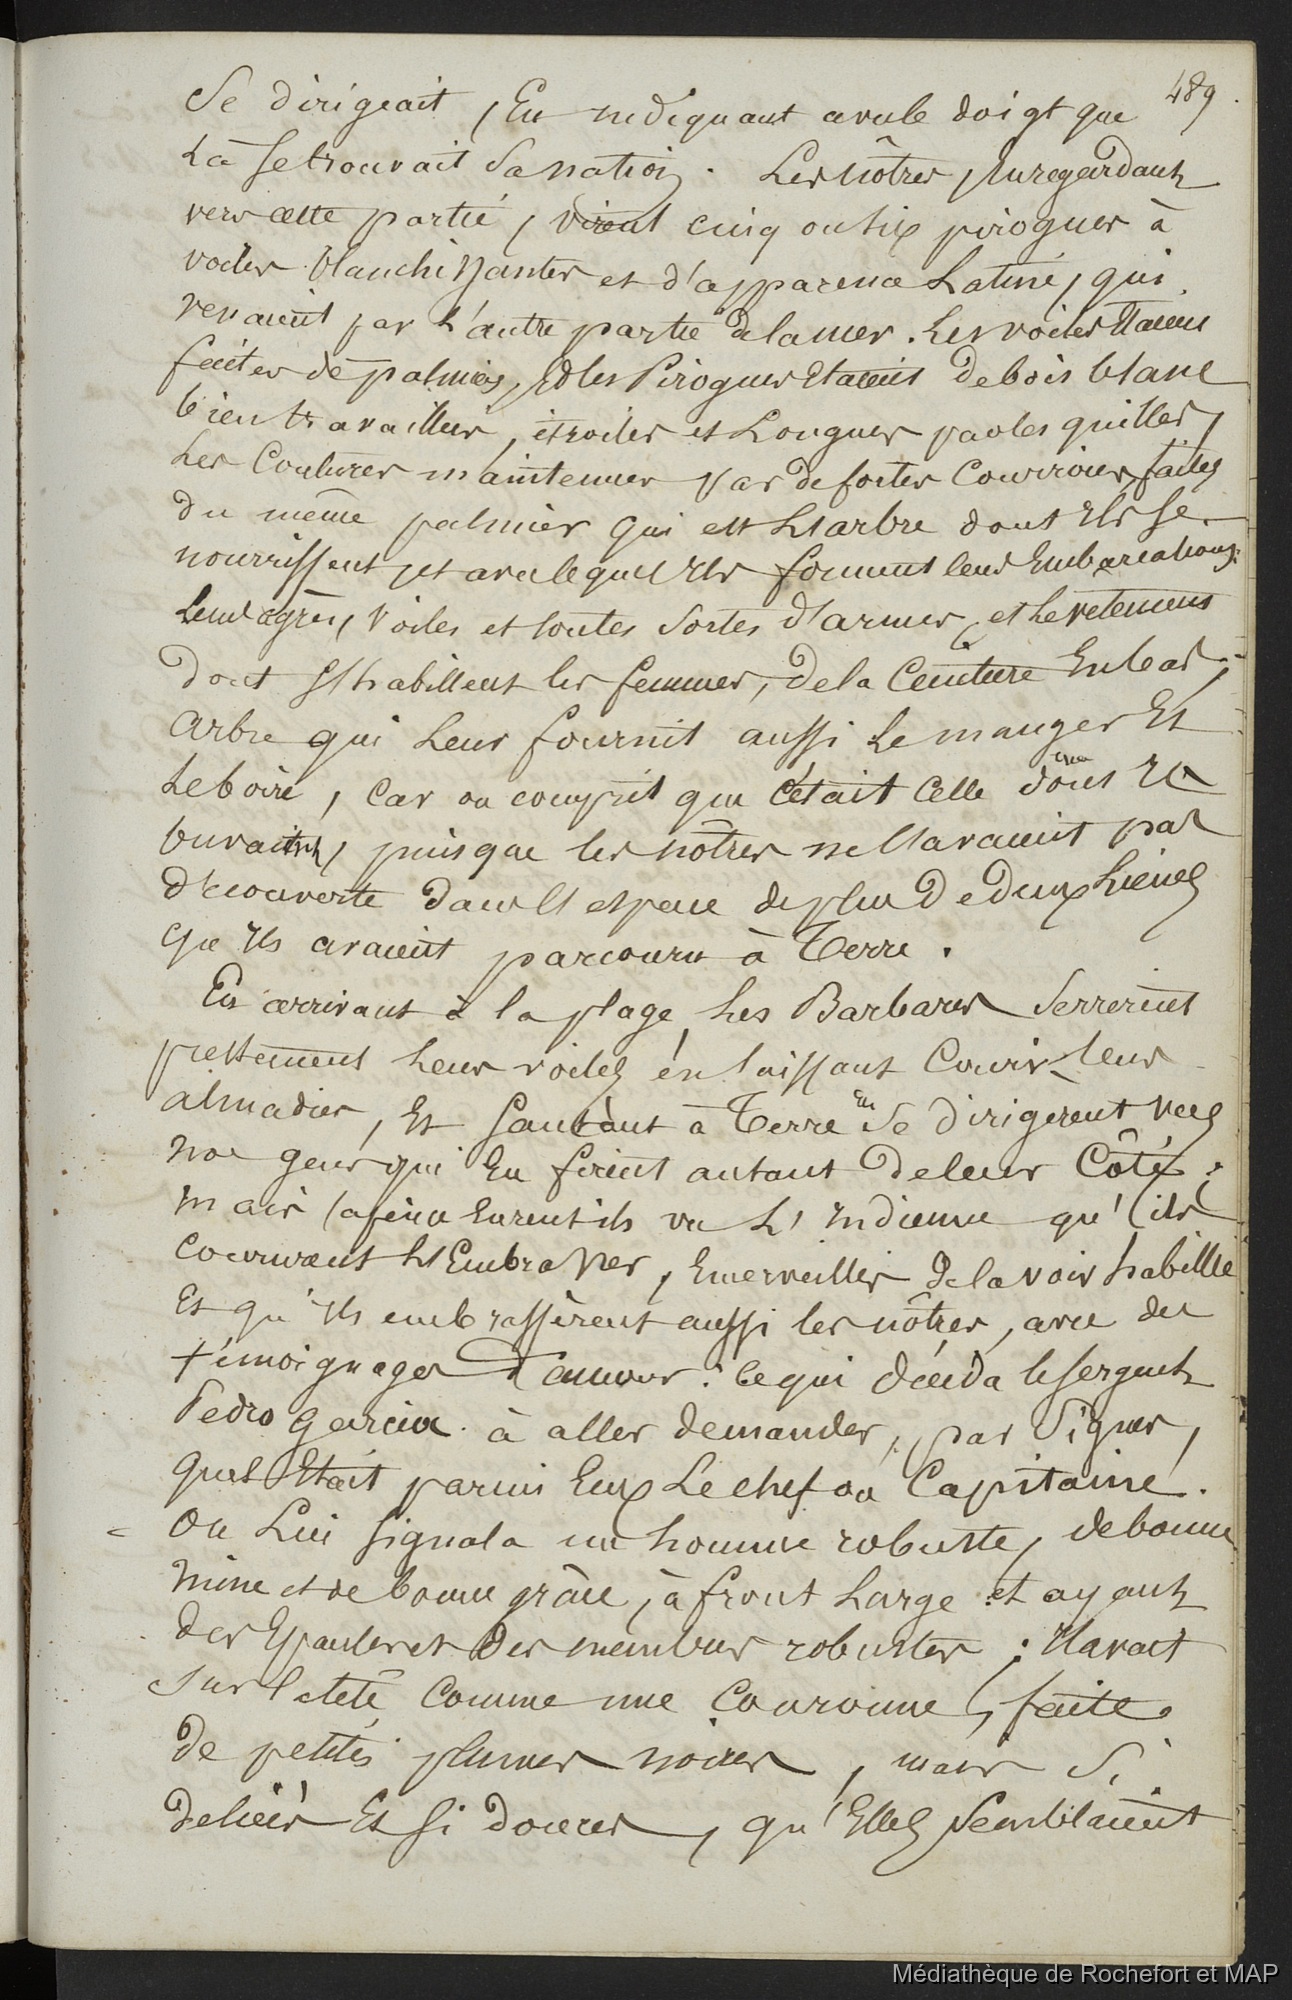 489
Se dirigeait, En indiquant avec le doigt que
Là se trouvait Sa nation. Les nôtres, En regardant
vers cette partie, virent cinq ou six pirogues à
voiles blanchissantes et d'apparence Latine, qui
venaient par l'autre partie de la mer. Les voiles Etaient
faites de palmier, Et les Pirogues Etaient de bois blanc
bien travaillées, étroites et Longues par les quilles,
Les Coutures maintenues par de fortes Courroies, faites
du même palmier qui est L'arbre dont Ils se
nourrissent, et avec lequel Ils forment leurs Embarcations,
Leurs agrès, Voiles et toutes Sortes d'armes, et Le vêtement
dont S'habillent les femmes, de la Ceinture En bas ;
arbre qui Leur fournit aussi Le manger Et
Le boire, Car on comprit que C'était Celle eau dont Ils
buvaient, puisque les nôtres ne L'avaient pas
découverte dans l'espace de plus De deux Lieues
qu'ils avaient parcouru à Terre.
En arrivant à la plage, Les Barbares Serrèrent
prestement Leurs voiles en laissant Courir Leurs
almadies, Et Sautant à Terre Ils Se dirigèrent vers
nos gens qui En firent autant de leur Côté ;
mais à peine Eurent ils vu L'Indienne qu'ils
coururent L'Embrasser, Emerveillés de la voir habillée
Et qu'Ils embrassèrent aussi les nôtres, avec des
témoignages d'amour : Ce qui décida le sergent
Pedro Garcia à aller demander, par Signes,
quel Etait parmi Eux Le chef ou Capitaine.
On Lui signala un homme robuste, de bonne
mine et de bonne grâce, à front Large et ayant
des Epaules et des membres robustes ; Il avait
sur la tête Comme une Couronne, faite
de petites plumes noires, mais Si
deliées Et Si douces, qu'Elles Semblaient
Médiathèque de Rochefort et MAP